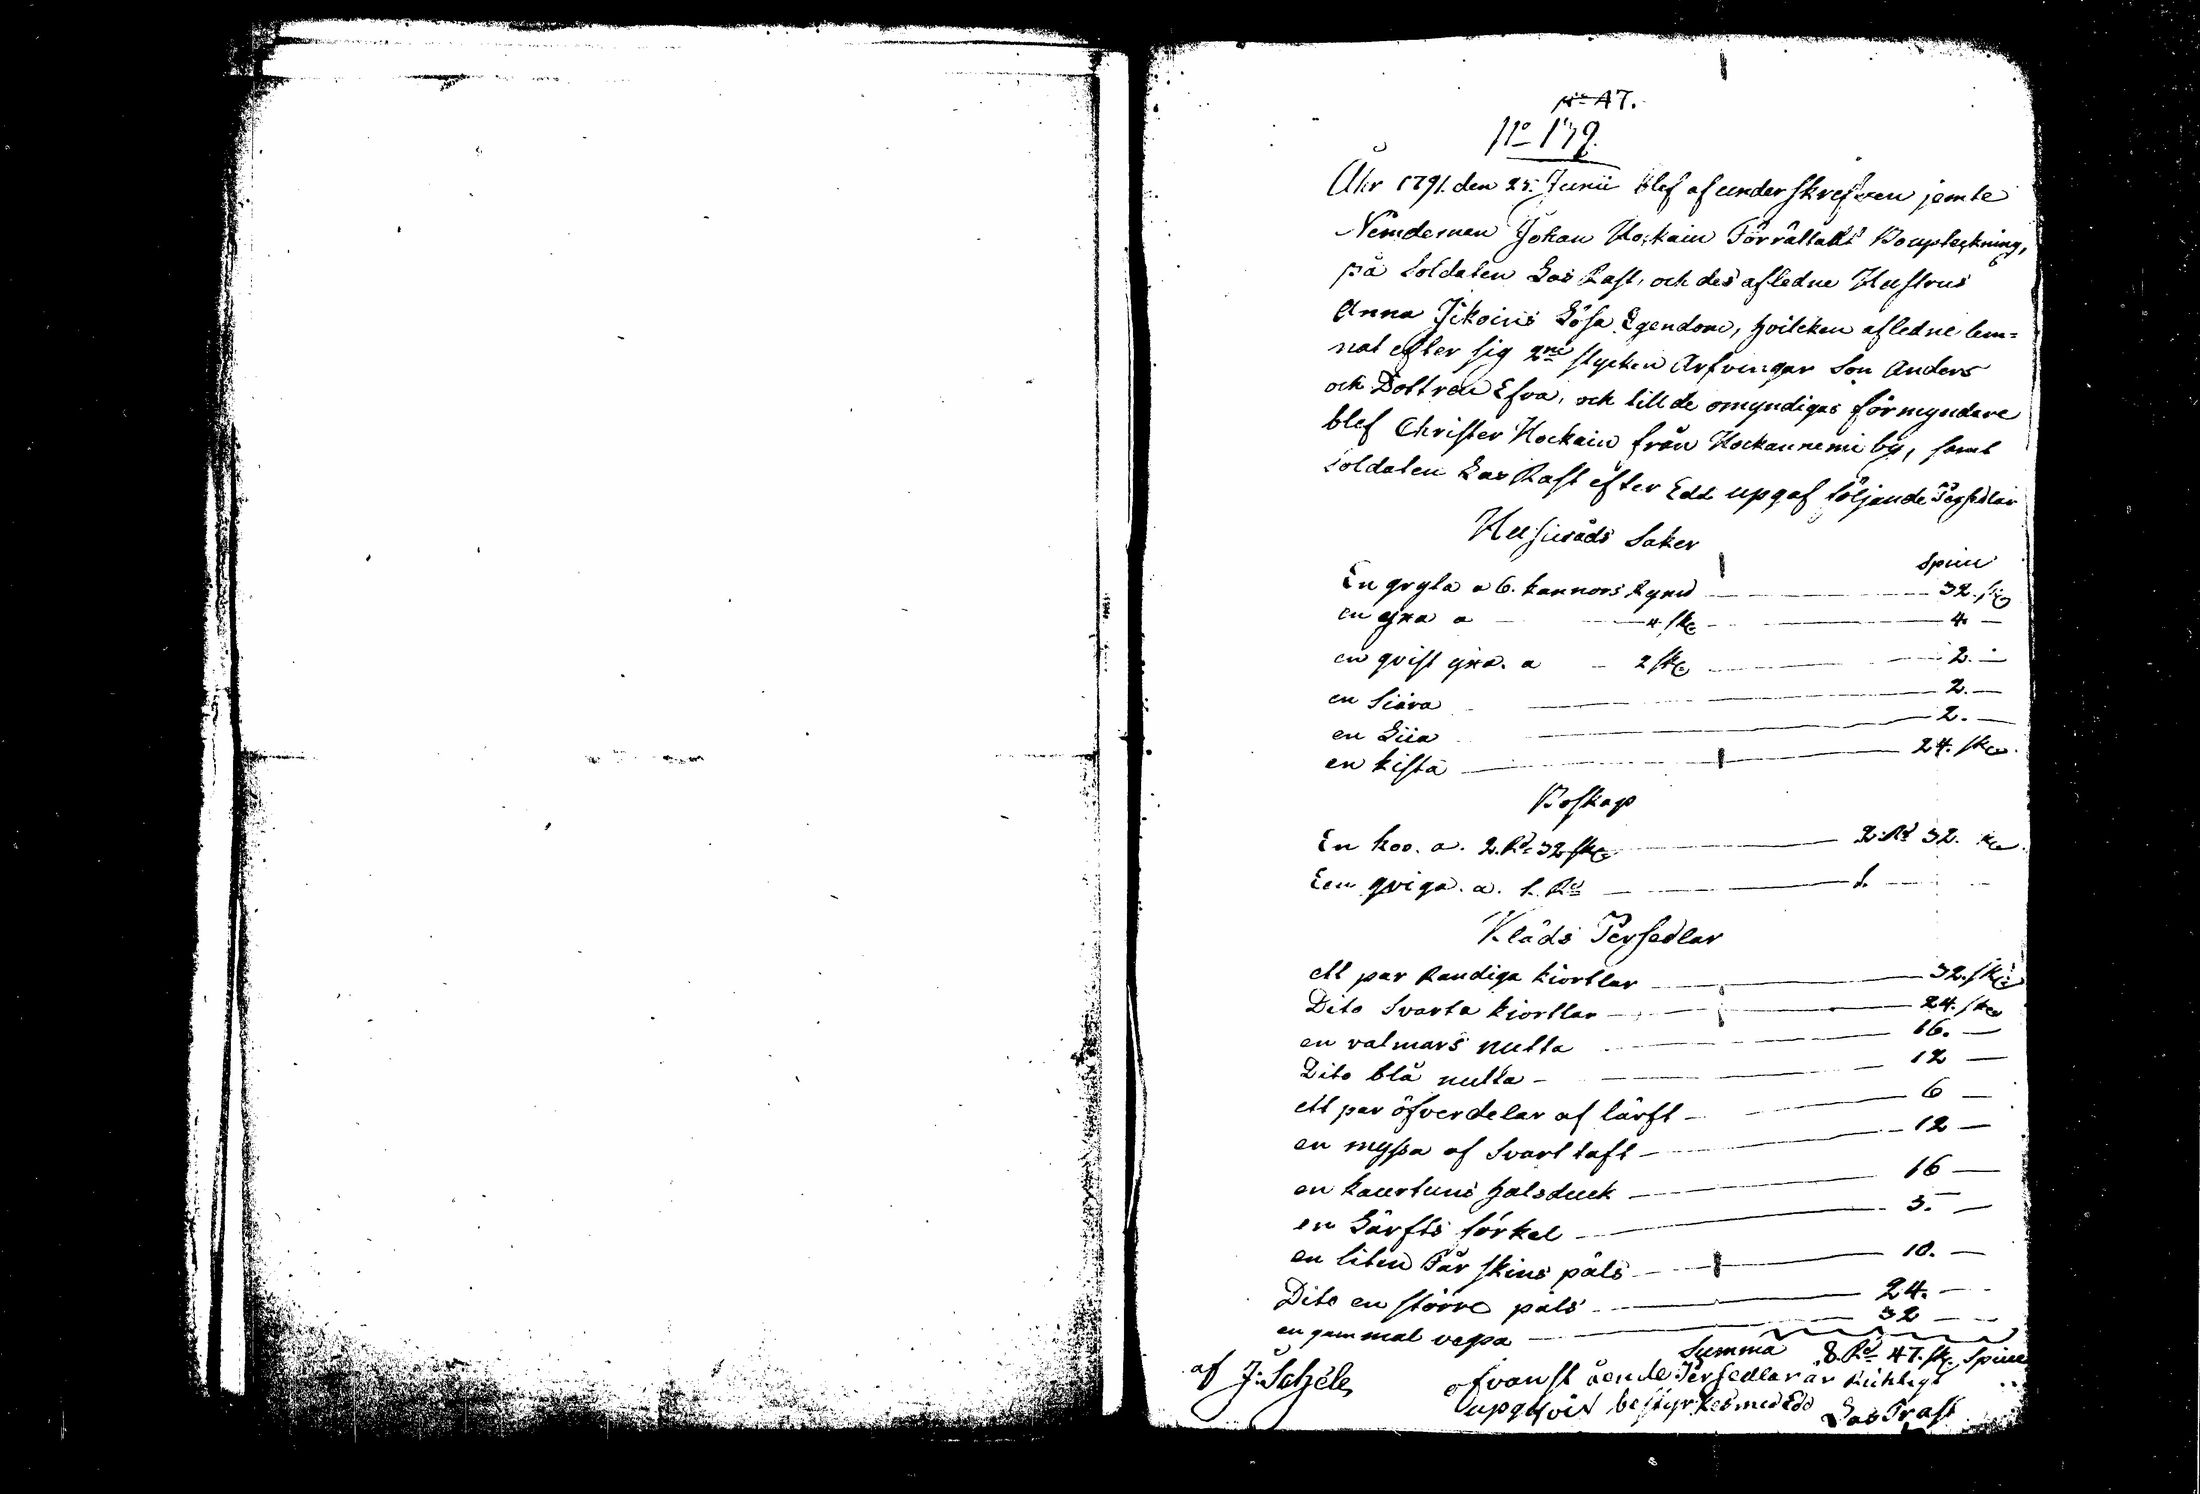 No 47.
No 179.
Åhr 1791. den 25. Junii blef af underskrefven jemte
Nemdeman Johan Hockain Förrättatt Bouptekning,
på Soldaten Las Rast, och des afledne Hustrus
Anna Ikoinis Lösa Egendom, hvilcken afledne lem=
nat efter sig 2ne stycken Arfvingar Son Anders
och Dottren Efva, och till de omyndigas förmyndare
blef Christer Hockain från Hockanniemi by, samt
Soldaten Las Rast efter Edd upgaf följande Persedlar
Husgeråds Saker
Specié
En gryta a 6. kannors Rymd 32. sk:
en yxa a 4 sk: 4
en qvist yxa. a 2 sk: 2.
en Skära 2.
en Liia 2.
en kista 24. sk:
Boskap
En koo. a. 2. Rd: 32 sk: 2: Rd 32. sk
Een qviga. a. 1. Rd 1.
Kläds Persedlar
ett par Randiga kiortlar 32. sk:
Dito Svarta kiortlar 24. sk:
en valmars nutta 16.
Dito blå nutta 12
ett par öfverdelar af lärft 6
en myssa af Svart taft 12
en kaurtuns halsduck 16
en Lärfts förkel 3.
en liten Får skins päls 10.
Dito en större päls 24.
en gammal vepa 32
Summa 8. Rd 47. sk. Speciè
ofvanst åendePersedlar är Richtigt
upgifvit bestyrkes med Edd
Las Trast
af J: